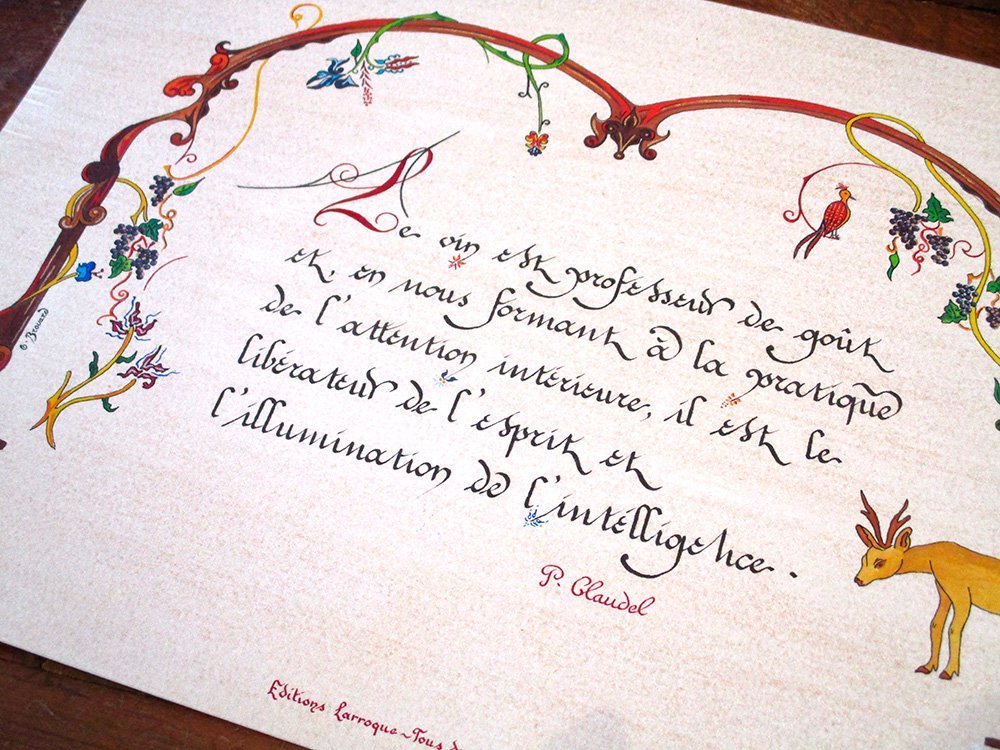 Le vin est professeur de goût
et, en nous formant à la pratique
de l'attention intérieure, il est le
libérateur de l'esprit et
l'illumination de l'intelligence.
P. Claudel
O. Brouard
Editions Larroque ~ Tous d